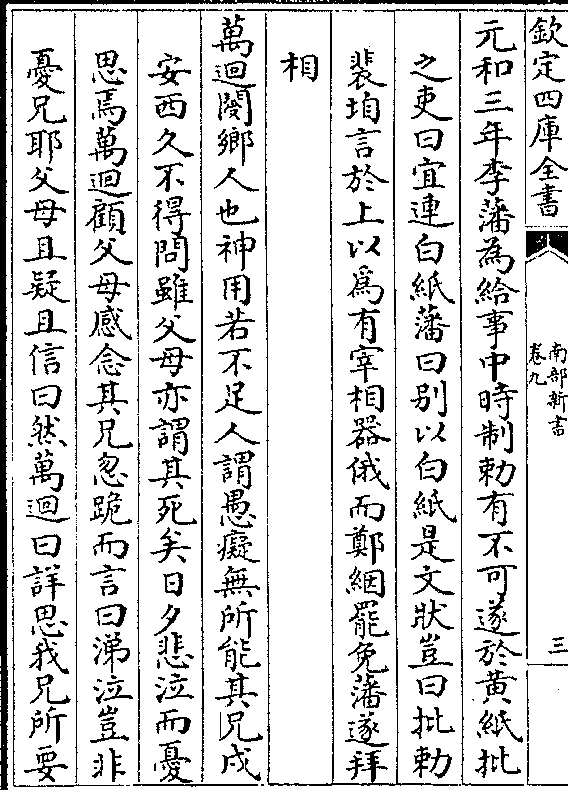 欽定四庫全書
南部新書
卷九
三
元和三年李藩為給事中時制勅有不可遂於黃紙批
之吏曰宜連白紙藩曰别以白紙是文狀豈曰批勅
裴垍言於上以爲有宰相器俄而鄭絪罷免藩遂拜
相
萬迴閿鄉人也神用若不足人謂愚癡無所能其兄戍
安西久不得問雖父母亦謂其死矣日夕悲泣而憂
思焉萬迴顧父母感念其兄忽跪而言曰涕泣豈非
憂兄耶父母且疑且信曰然萬迴曰詳思我兄所要